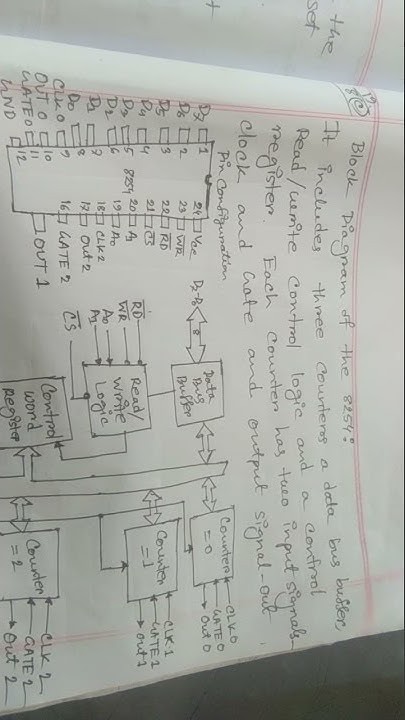 the
set
Block Diagram of the 8254:
It includes three counters a data bus buffer,
Read/write control logic and a control
register. Each counter has two input signals-
clock and Gate and output signal-out.
Pin configuration
D7 1
D6 2
D5 3
D4 4
D3 5
D2 6
D1 7
D0 8
CLK 0 9
OUT 0 10
GATE 0 11
GND 12
8254
24 Vcc
23 WR
22 RD
21 CS
20 A1
19 A0
18 CLK2
17 Out 2
16 GATE 2
OUT 1
8
Data
Bus
Buffer
RD
WR
A0
A1
CS
Read/
Write
Logic
Control
word
Register
Counter
=0
CLK 0
GATE 0
Out 0
Counter
=1
CLK 1
GATE 1
out 1
Counter
=2
CLK 2
GATE 2
Out 2